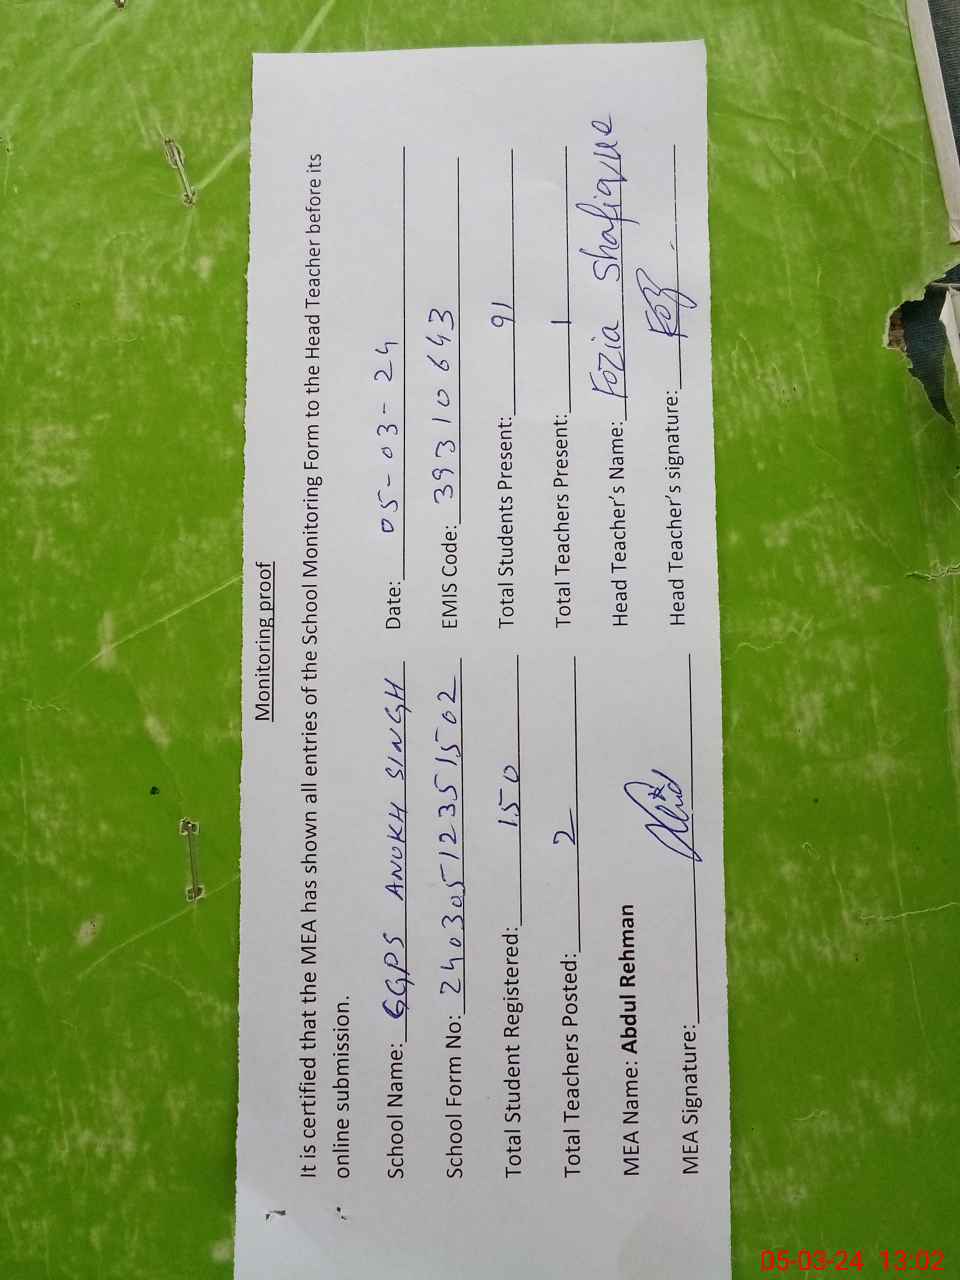 Monitoring proof
It is certified that the MEA has shown all entries of the School Monitoring Form to the Head Teacher before its
online submission.
School Name: GGPS ANOKH SINGH Date: 05-03-24
School Form No: 240305123551502 EMIS Code: 39310643
Total Student Registered: 150 Total Students Present: 91
Total Teachers Posted: 2 Total Teachers Present: 1
MEA Name: Abdul Rehman Head Teacher's Name: Fozia Shafique
MEA Signature: Head Teacher's signature: Foz
05-03-24 13:02